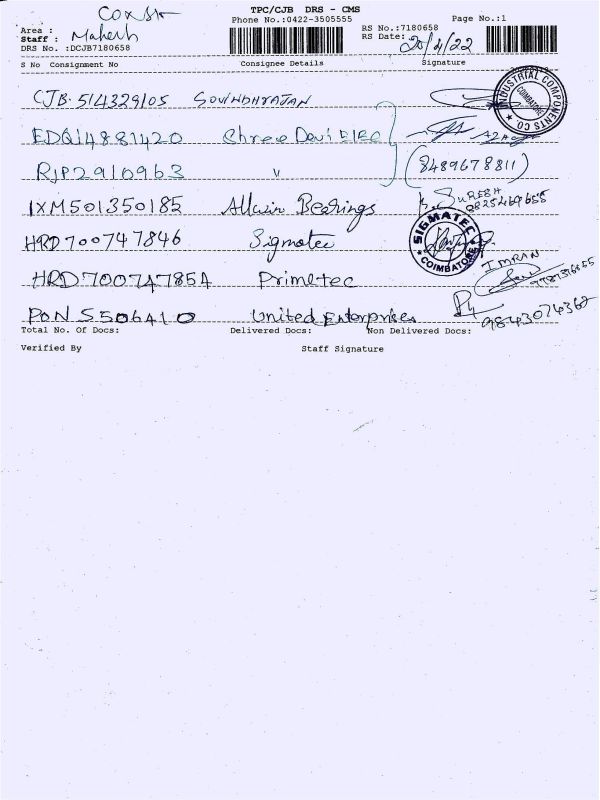 TPC/CJB DRS - CMS
Phone No.:0422-3505555
Page No.:1
Area :
Staff : Mahesh
DRS No. :DCJB7180658
RS No.:7180658
RS Date: 20/4/22
S No Consignment No Consignee Details Signature
CJB 514329105 GOVINDHRAJAN
INDUSTRIAL COMPONENTS CO
COIMBATORE
EDQ14881420 Shree Devi ELEC
RJP2910963 " (8489678811)
IXM501350185 Allwin Bearings SURESH
HRD700747846 Sigmatec
SIGMATEC
COIMBATORE
HRD70074785A Primetec IMRAN
PON S506410 United Enterprises
Total No. Of Docs: Delivered Docs: Non Delivered Docs:
Verified By Staff Signature